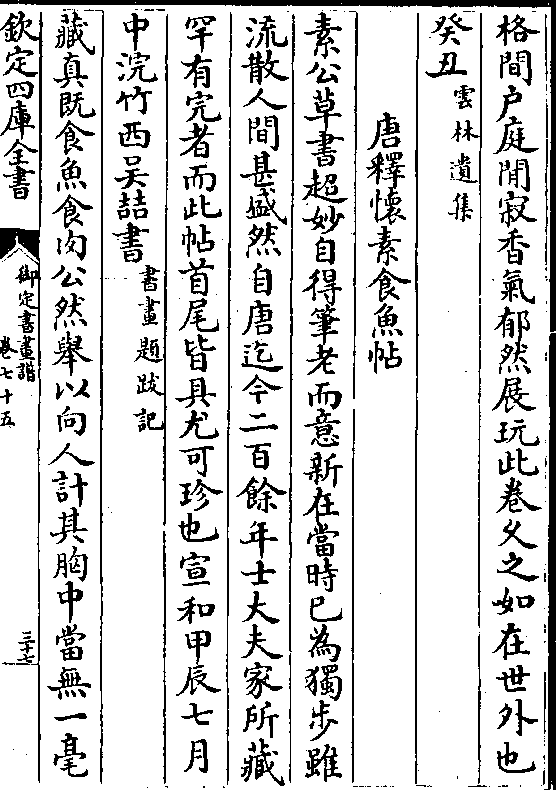 格間户庭閒寂香氣郁然展玩此卷久之如在世外也
癸丑雲林遺集
唐釋懷素食魚帖
素公草書超妙自得筆老而意新在當時已為獨步雖
流散人間甚盛然自唐迄今二百餘年士大夫家所藏
罕有完者而此帖首尾皆具尤可珍也宣和甲辰七月
中浣竹西吴喆書書畫題跋記
藏真既食魚食肉公然舉以向人計其胸中當無一毫
欽定四庫全書
御定書畫譜
卷七十五
三十七